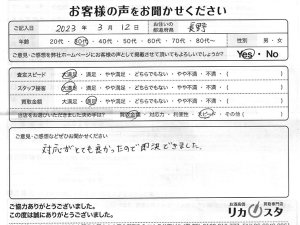 お客様の声をお聞かせください
ご記入日 2023年 3月 12日 お住いの都道府県 長野
年齢 20代・30代・40代・50代・60代・70代・80代〜 性別 男・女
ご意見・ご感想を弊社ホームページにお客様の声として掲載させて頂いてもよろしいでしょうか? Yes・No
査定スピード 大満足・満足・やや満足・どちらでもない・やや不満・不満・( )
スタッフ接客 大満足・満足・やや満足・どちらでもない・やや不満・不満・( )
買取金額 大満足・満足・やや満足・どちらでもない・やや不満・不満・( )
当店をお選びいただきました決め手は? 買取金額・対応力・利便性・スピード・その他( )
ご意見・ご感想などぜひお聞かせください
対応がとても良かったので即決できました。
ご協力ありがとうございました。
この度は誠にありがとうございました。
お酒高価買取専門店
リカスタ